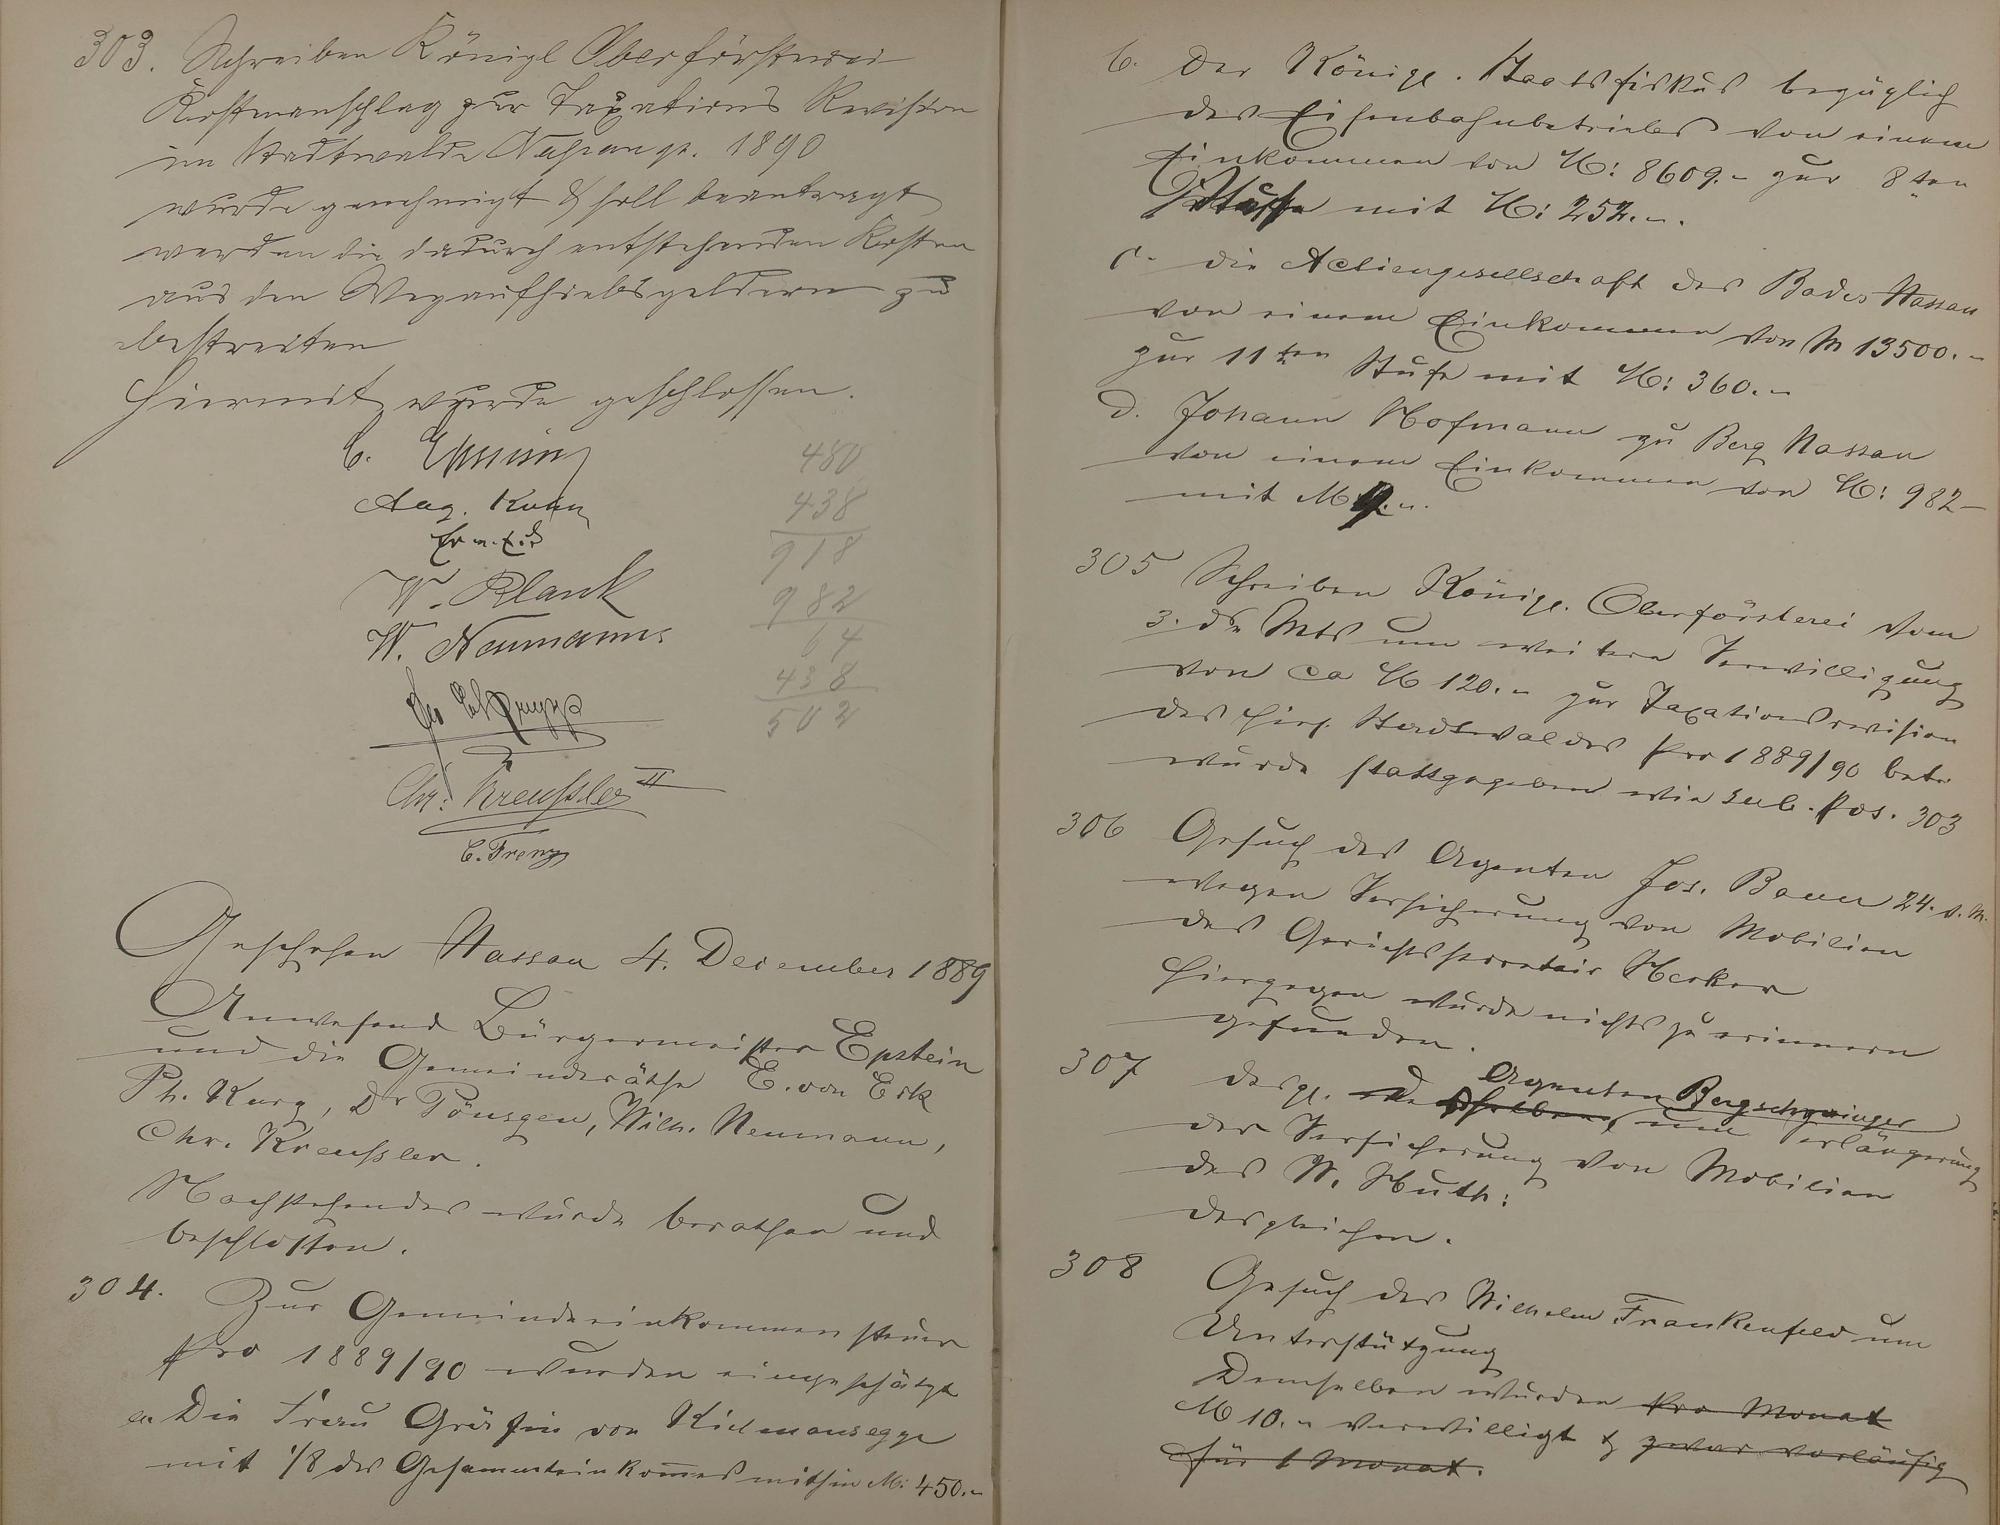 303. Schreiben Königl Oberförsterei
Kostenanschlag zur Taxations Revision
im Stadtwalde Nassau p. 1890
wurde genehmigt & soll beantragt
werden die dadurch entstehenden Kosten
aus den Wegaufhiebsgeldern zu
bestreiten
Hiermit wurde geschlossen.
480
Aug.
438
918
W. Blank
982
W. Neumann.
64
438
502
Chr: Kreußler II
C. Frenz
Geschehen Nassau 4. December 1889
Anwesend Bürgermeister Epstein
und die Gemeinderäthe E. von Eck
Ph. Kurz, Dr Pönsgen, Wilh. Neumann,
Chr. Kreußler.
Nachstehendes wurde berathen und
beschlossen.
304. Zur Gemeindeeinkommensteuer
pro 1889/90 wurden eingeschätzt
a Die Frau Gräfin von Kielmansegge
mit 1/8 des Gesammteinkomes mithin M: 450.-
b. Der Königl. Staatsfiskus bezüglich
des Eisenbahnbetriebes von einem
Einkommen von M: 8609.- zur 8ten
Stufe mit M: 252.-.
c. die Actiengesellschaft des Bades Nassau
von einem Einkommen von M 13500.-
zur 11ten Stufe mit M: 360.-
d. Johann Hofmann zu Berg Nassau
von einem Einkommen von M: 982-
mit M 9.-.
305 Schreiben Königl. Oberförsterei vom
3. ds Mts um weitere Verwilligung
von ca M 120.- zur Taxationsrevision
des hies. Stadtwaldes pro 1889/90 betr
wurde stattgegeben wie sub. Pos. 303
306 Gesuch des Agenten Jos. Bauer 24. v. M.
wegen Versicherung von Mobilien
des Gerichtssecretair Herker
Hiergegen wurde nichts zu erinnern
gefunden.
307 desgl. Agenten Bergschwinger
um Verlängerung
der Versicherung von Mobilien
des W. Huth:
desgleichen.
308 Gesuch des Wilhelm Frankenfeld um
Unterstützung
Demselben wurden pro Monat
M 10.- verwilligt & zwar vorläufig
für 1 Monat.